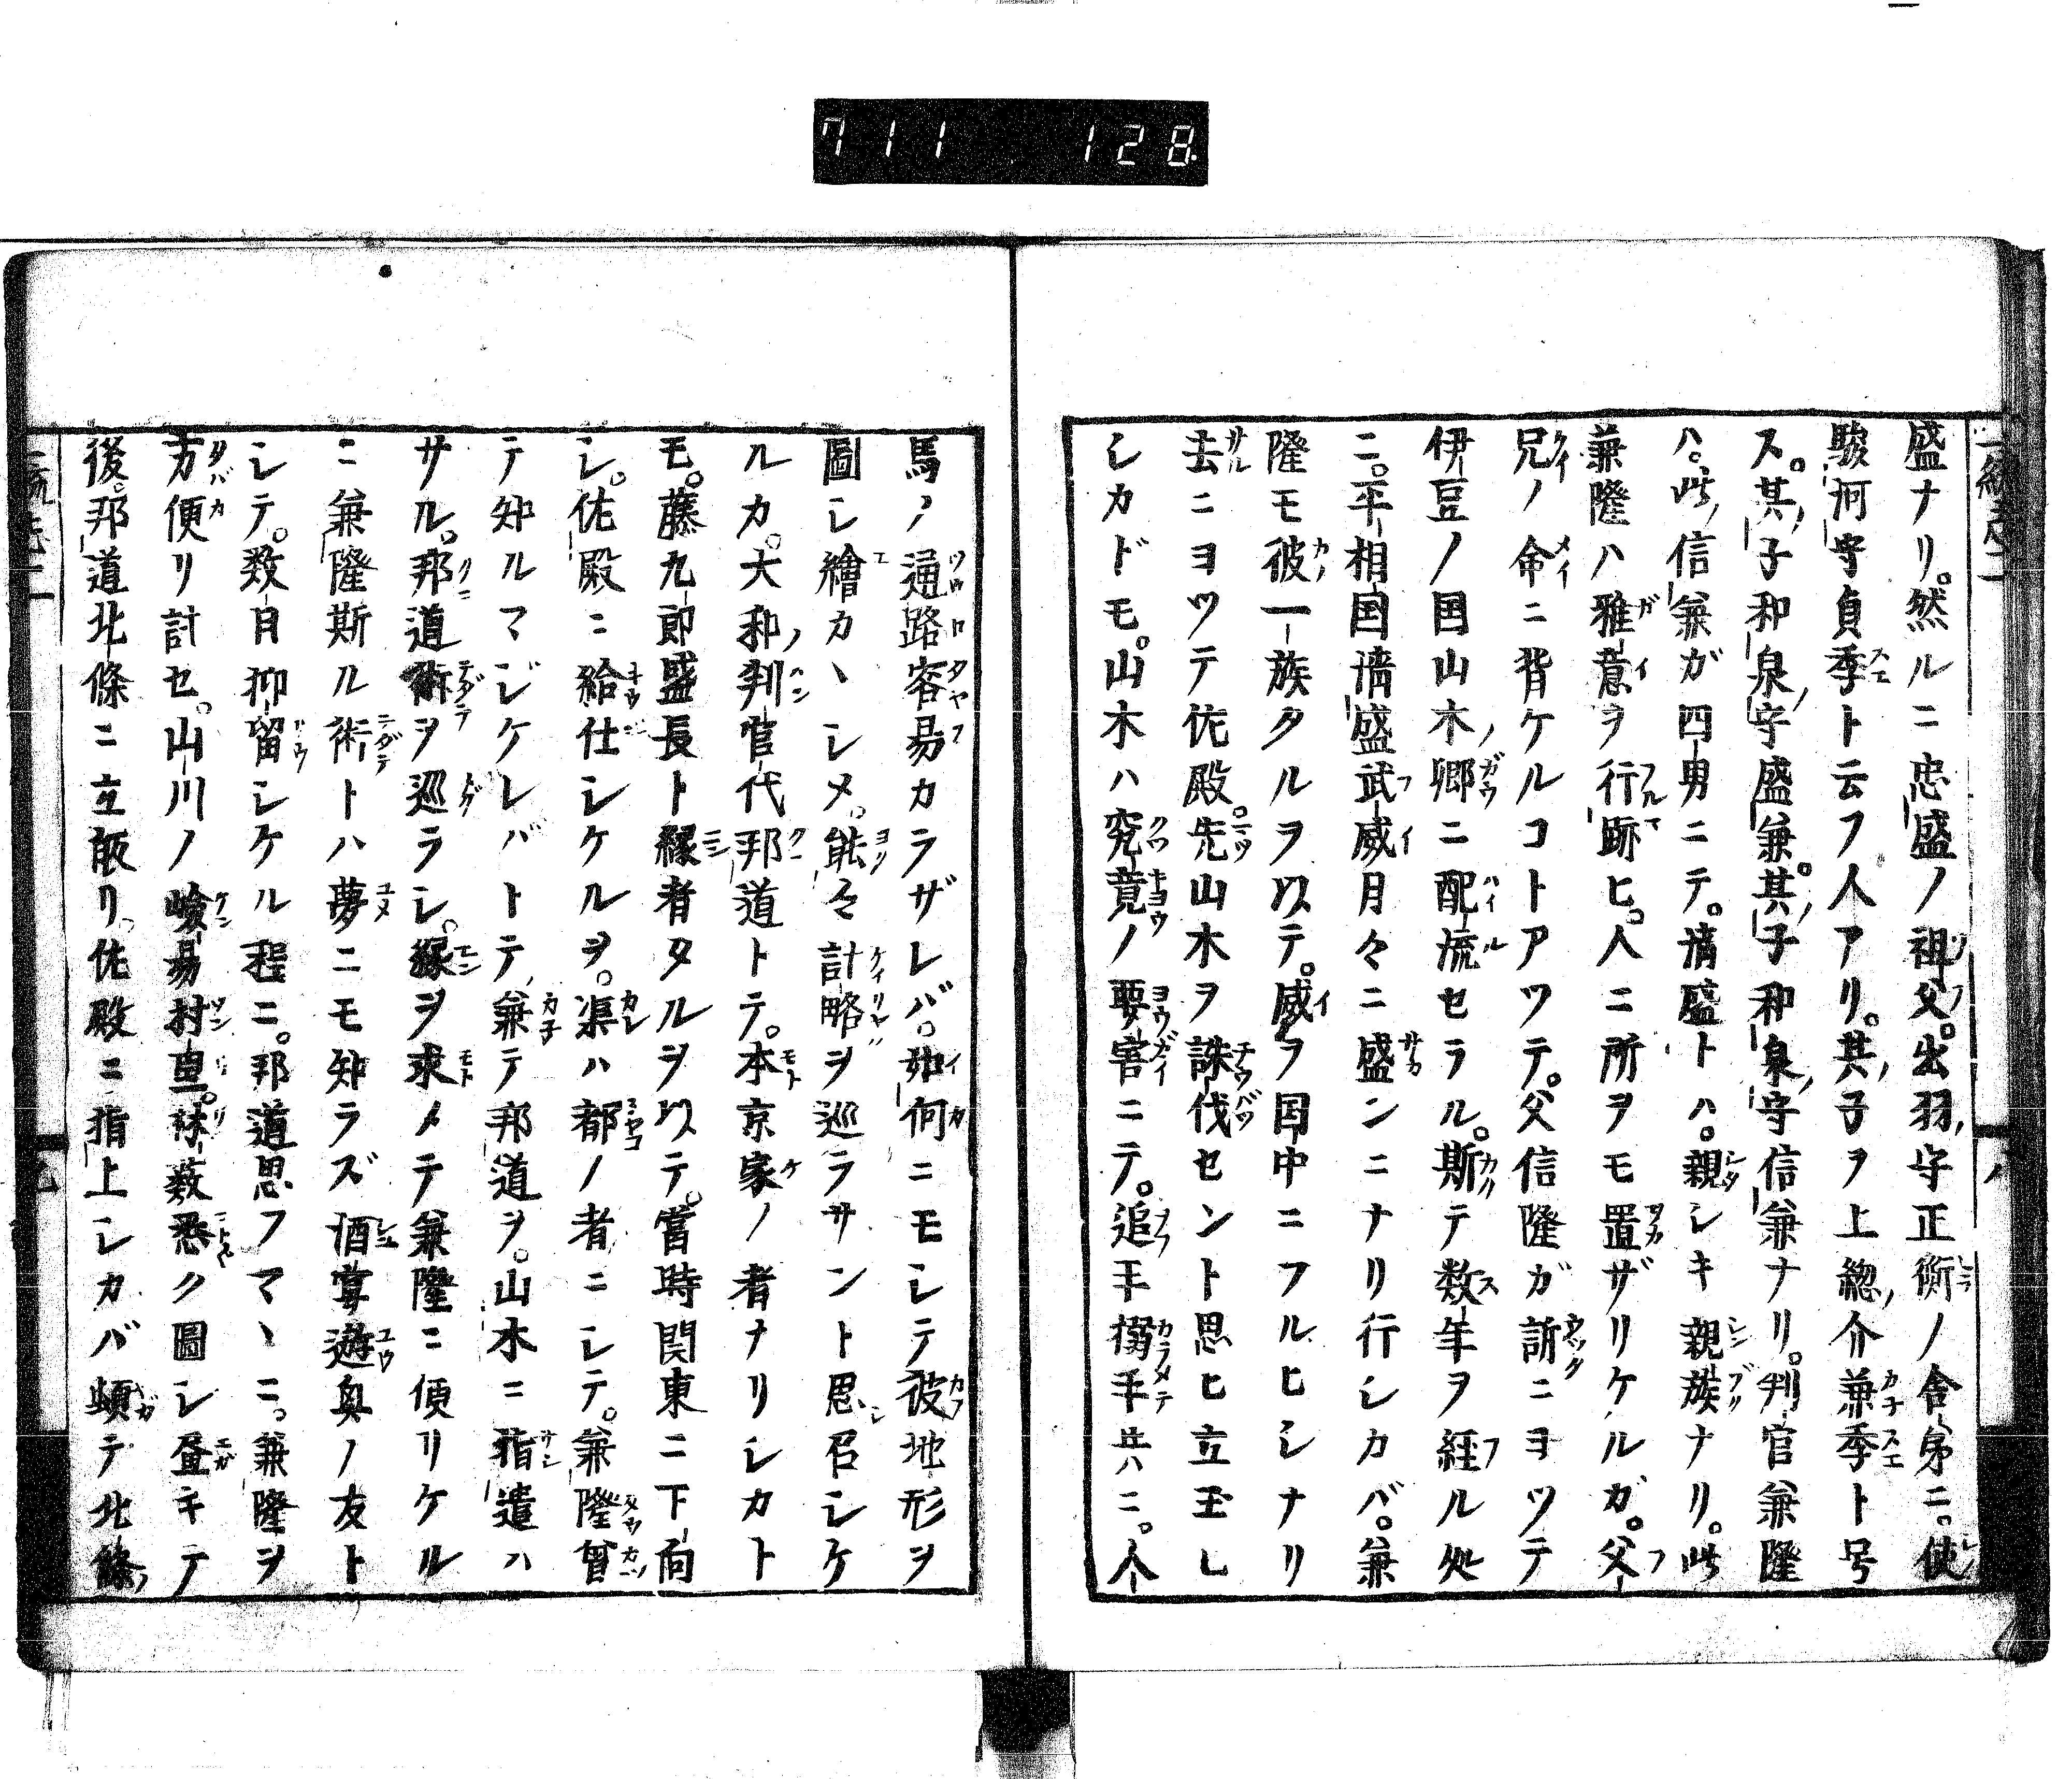 711 128
盛ナリ。然ルニ忠盛ノ祖父。出羽守正衡ノ舎弟ニ。使
駿河守貞季ト云フ人アリ。其子ヲ上総介兼季ト号
ス。其子和泉守盛兼。其子和泉守信兼ナリ。判官兼隆
ハ。此信兼ガ四男ニテ。清盛トハ。親シキ親族ナリ。此
兼隆ハ雅意ヲ行跡ヒ。人ニ所ヲモ置ザリケルガ。父
兄ノ命ニ背ケルコトアツテ。父信隆ガ訴ニヨツテ
伊豆ノ国山木郷ニ配流セラル。斯テ数年ヲ経ル処
ニ。平相国清盛武威月々ニ盛ンニナリ行シカバ。兼
隆モ彼一族タルヲ以テ。威ヲ国中ニフルヒシナリ
去ニヨツテ佐殿。先山木ヲ誅伐セント思ヒ立玉し
シカドモ。山木ハ究竟ノ要害ニテ。追手搦手共ハニ。人
馬ノ通路容易カラザレバ。如何ニモシテ彼地形ヲ
圖シ繪カヽシメ。能々計略ヲ巡ラサント思召シケ
ルカ。大和判官代邦道トテ。本京家ノ者ナリシカト
モ。藤九郎盛長ト縁者タルヲ以テ。當時関東ニ下向
シ。佐殿ニ給仕シケルヲ。渠ハ都ノ者ニシテ。兼隆曾
テ知ルマジケレバトテ兼テ邦道ヲ。山木ニ指遣ハ
サル。邦道術ヲ巡ラシ。縁ヲ求メテ兼隆ニ便リケル
ニ兼隆斯ル術トハ夢ニモ知ラズ酒宴遊奥ノ友ト
シテ。数日抑留シケル程ニ。邦道思フマヽニ。兼隆ヲ
方便リ計セ。山川ノ嶮易村里。林薮悉ク圖シ昼キテ
後。邦道北條ニ立皈リ。佐殿ニ指上シカバ頓テ北條